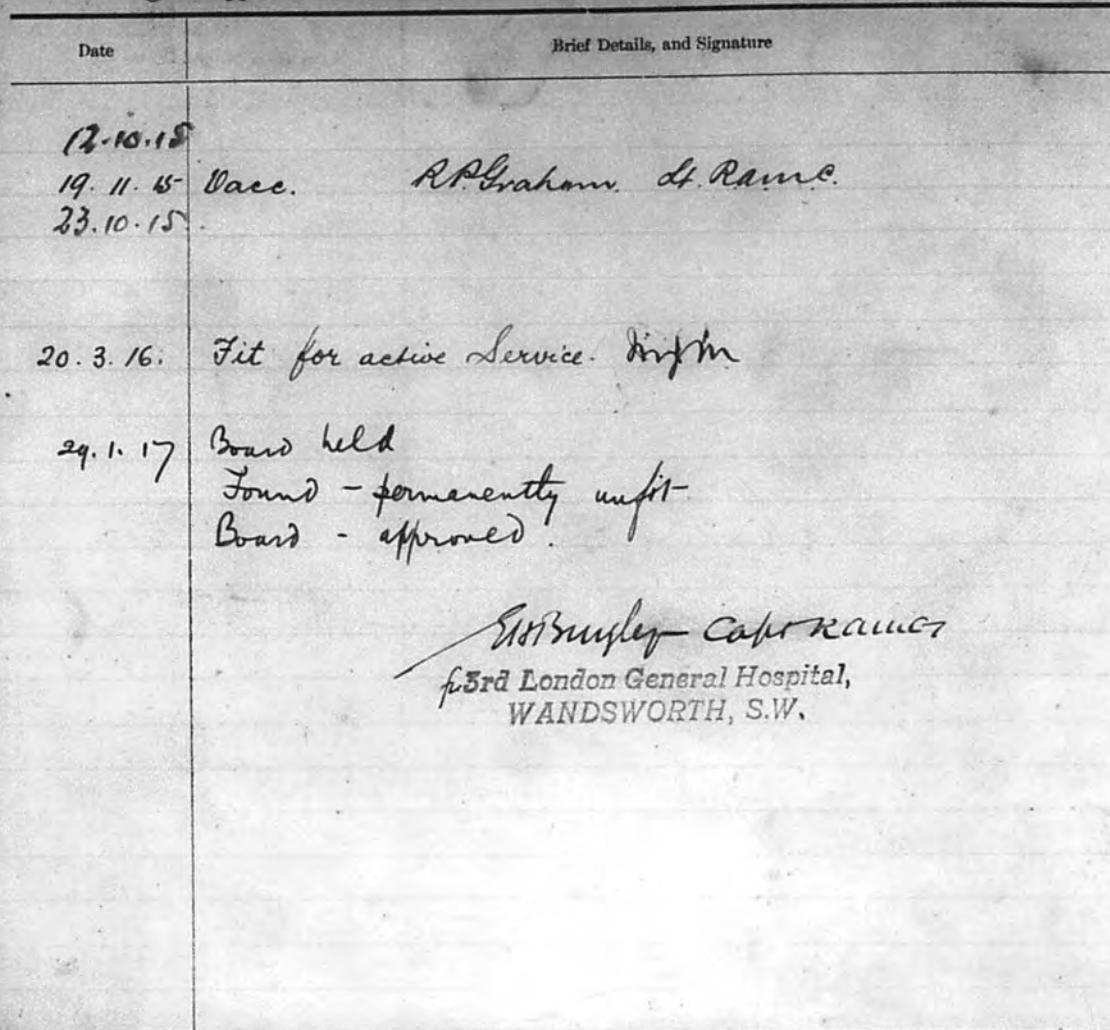 Date Brief Details, and Signature
12.10.15
19.11.15 Vacc. R.P. Graham. Lt. RAMC.
23.10.15.
20.3.16. Fit for active Service.
29.1.17 Board held
Found - permanently unfit
Board - approved.
Capt RAMC
f. 3rd London General Hospital,
WANDSWORTH, S.W.